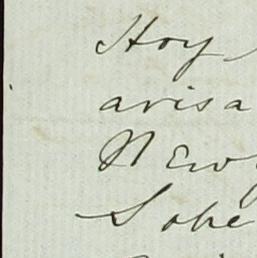 Hoy
avisa
New
Sobe